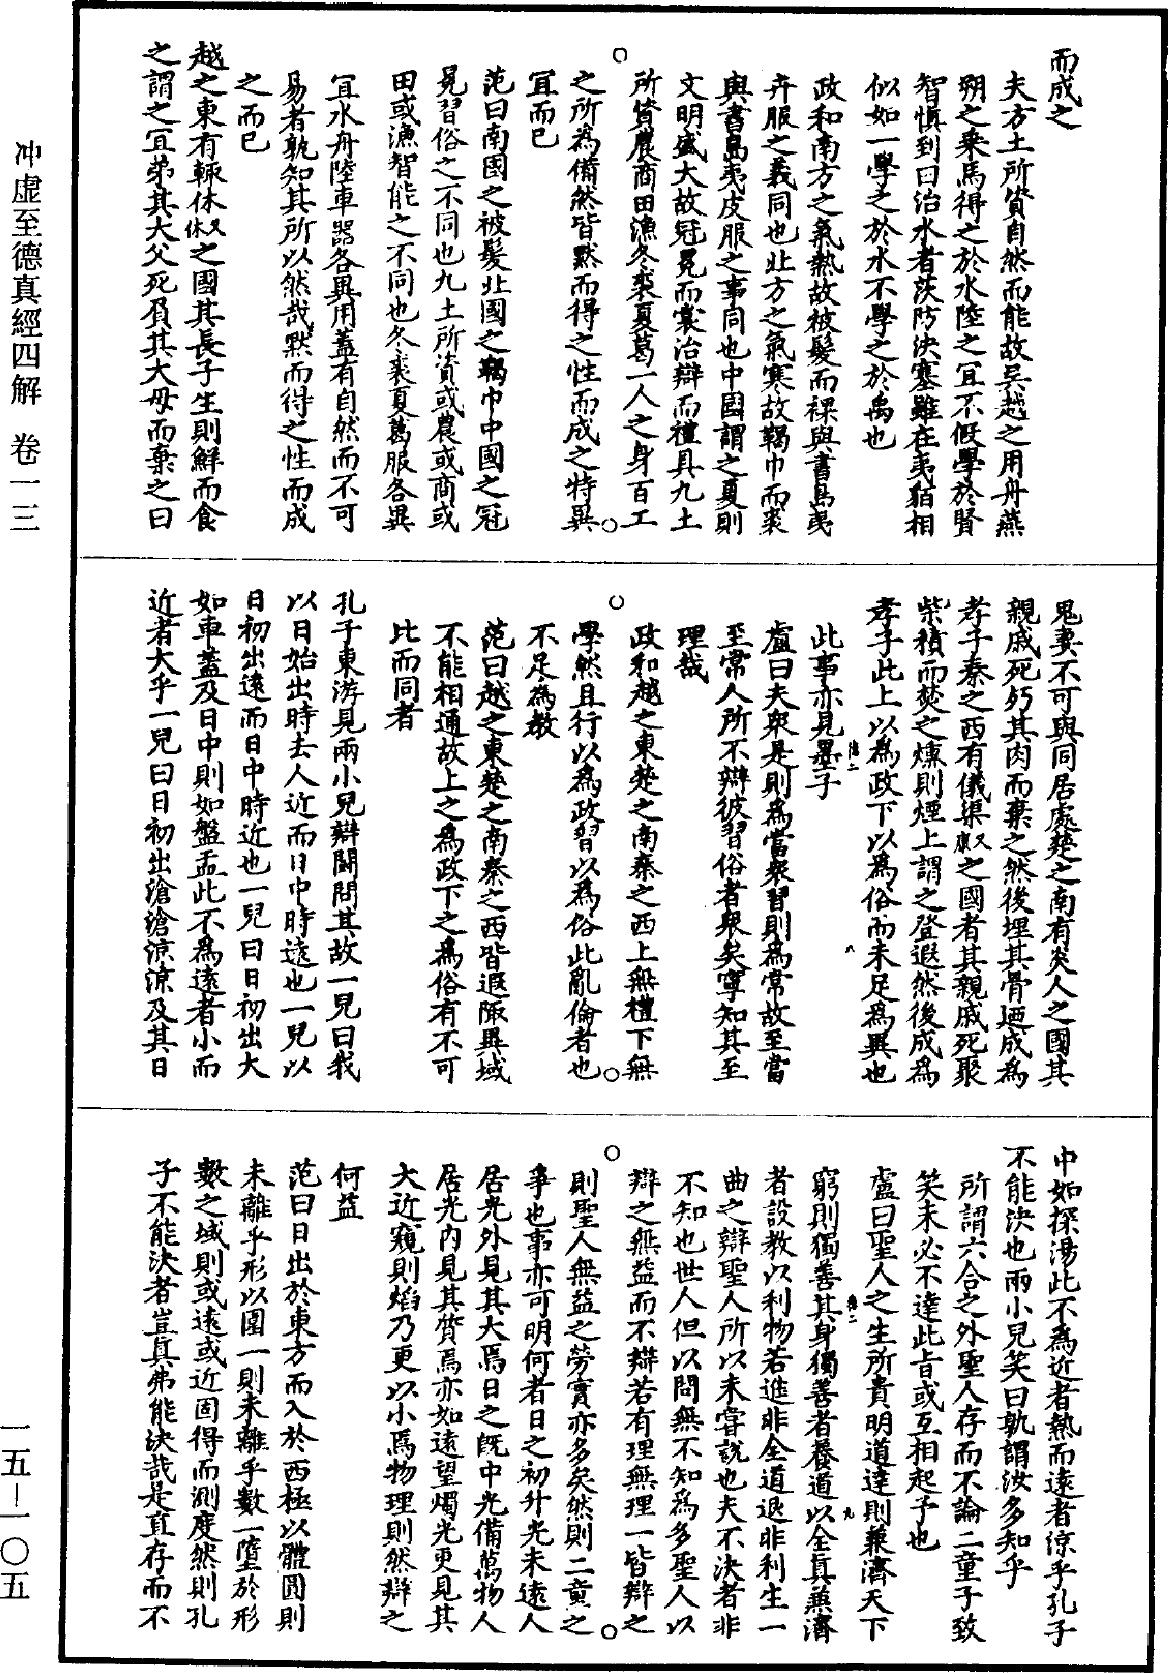 冲虛至德真經四解　卷一三
而成之
夫方土所資自然而能故吳越之用舟燕
朔之乘馬得之於水陸之宜不假學於賢
智慎到曰治水者茨防決塞雖在夷貊相
似如一學之於水不學之於禹也
政和南方之氣熱故被髮而裸與書島夷
卉服之義同也北方之氣寒故鞨巾而裘
與書島夷皮服之事同也中國謂之夏則
文明盛大故冠冕而裳治辯而禮具九土
所資農商田漁冬裘夏葛一人之身百工
之所為備然皆默而得之性而成之特異
宜而已
范曰南國之被髮北國之鞨巾中國之冠
冕習俗之不同也九土所資或農或商或
田或漁智能之不同也冬裘夏葛服各異
宜水舟陸車器各異用蓋有自然而不可
易者孰知其所以然哉默而得之性而成
之而已
越之東有輒休又休之國其長子生則鮮而食
之謂之宜弟其大父死負其大母而棄之曰
鬼妻不可與同居處楚之南有炎人之國其
親戚死㱙其肉而棄之然後埋其骨迺成為
孝子秦之西有儀渠又康之國者其親戚死聚
柴積而焚之燻則煙上謂之登遐然後成為
孝子此上以為政下以為俗而未足為異也
此事亦見墨子
盧曰夫眾是則為當眾習則為常故至當
至常人所不辯彼習俗者眾矣寧知其至
理哉
政和越之東楚之南秦之西上無禮下無
學然且行以為政習以為俗此亂倫者也
不足為教
范曰越之東楚之南秦之西皆遐陬異域
不能相通故上之為政下之為俗有不可
比而同者
孔子東游見兩小兒辯鬪問其故一兒曰我
以日始出時去人近而日中時遠也一兒以
日初出遠而日中時近也一兒曰日初出大
如車蓋及日中則如盤盂此不為遠者小而
近者大乎一兒曰日初出滄滄涼涼及其日
中如探湯此不為近者熱而遠者涼乎孔子
不能決也兩小兒笑曰孰謂汝多知乎
所謂六合之外聖人存而不論二童子致
笑未必不達此旨或互相起予也
盧曰聖人之生所貴明道達則兼濟天下
窮則獨善其身獨善者養道以全真兼濟
者設教以利物若進非全道退非利生一
曲之辯聖人所以未嘗說也夫不決者非
不知也世人但以問無不知為多聖人以
辯之無益而不辯若有理無理一皆辯之
則聖人無益之勞實亦多矣然則二童之
爭也事亦可明何者日之初升光未遠人
居光外見其大焉日之既中光備萬物人
居光內見其質焉亦如遠望燭光更見其
大近窺則焰乃更以小焉物理則然辯之
何益
范曰日出於東方而入於西極以體圓則
未離乎形以圍一則未離乎數一墮於形
數之域則或遠或近固得而測度然則孔
子不能決者豈真弗能決哉是直存而不
一五—一〇五